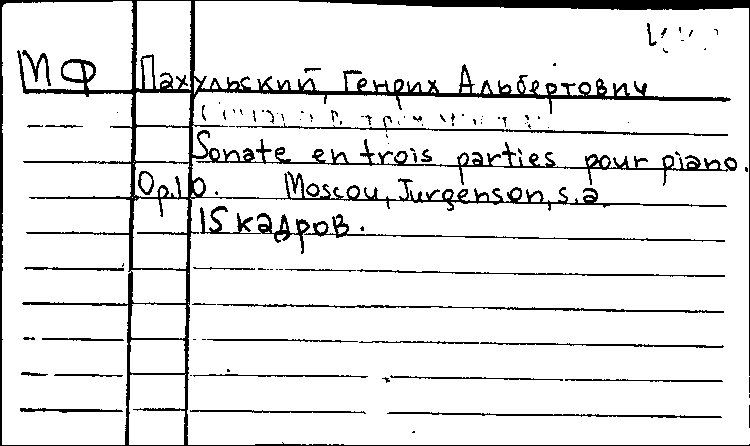 МФ Пахульский, Генрих Альбертович
Sonate en trois parties pour piano.
Op.10. Moscou, Jurgenson, s.a.
15 кадров.